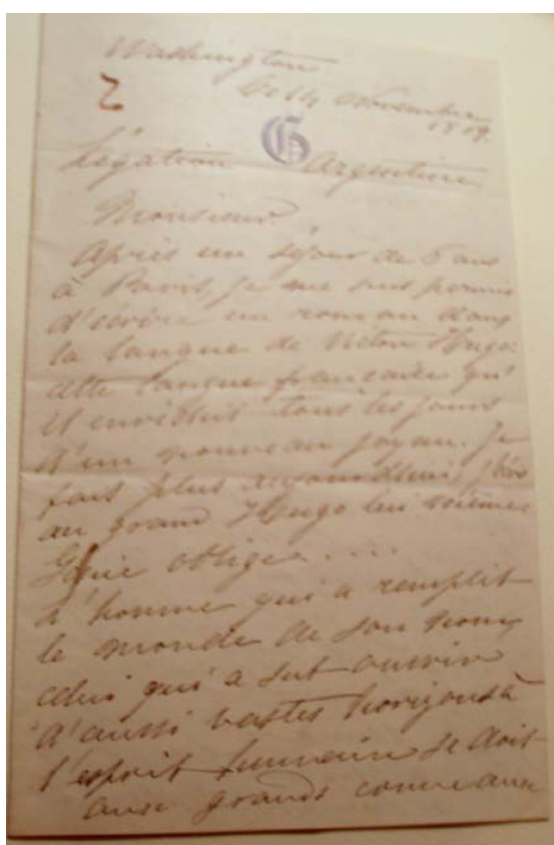 Washington
2
Ce 14 Novembre
1879.
G
Légation Argentine
Monsieur.
Après un séjour de 6 ans
à Paris, je me suis permis
d'écrire un roman dans
la langue de Victor Hugo.
cette langue française qu'
il enrichit tous les jours
d'un nouveau joyau. Je
fais plus aujourd'hui, j'écris
au grand Hugo lui même
Génie oblige.....
L'homme qui a remplit
le monde de son nom,
celui qui a sut ouvrir
d'aussi vastes horizons à
l'esprit humain se doit
aux grands comme aux